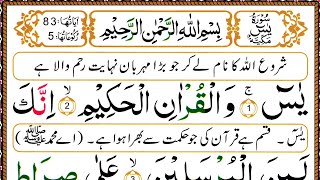 سُوْرَةُ يٰسٓ مَكِّيَّةٌ
بِسْمِ اللّٰهِ الرَّحْمٰنِ الرَّحِيْمِ
اٰيَاتُهَا: 83
رُكُوْعَاتُهَا: 5
شروع اللہ کا نام لے کر جو بڑا مہربان نہایت رحم والا ہے
يٰسٓ ۚ ﴿1﴾ وَالْقُرْاٰنِ الْحَكِيْمِ ۙ ﴿2﴾ اِنَّكَ
یٰسٓ ۔ قسم ہے قرآن کی جو حکمت سے بھرا ہوا ہے ۔ (اے محمد ﷺ)
لَمِنَ الْمُرْسَلِيْنَ ۙ ﴿3﴾ عَلٰى صِرَاطٍ